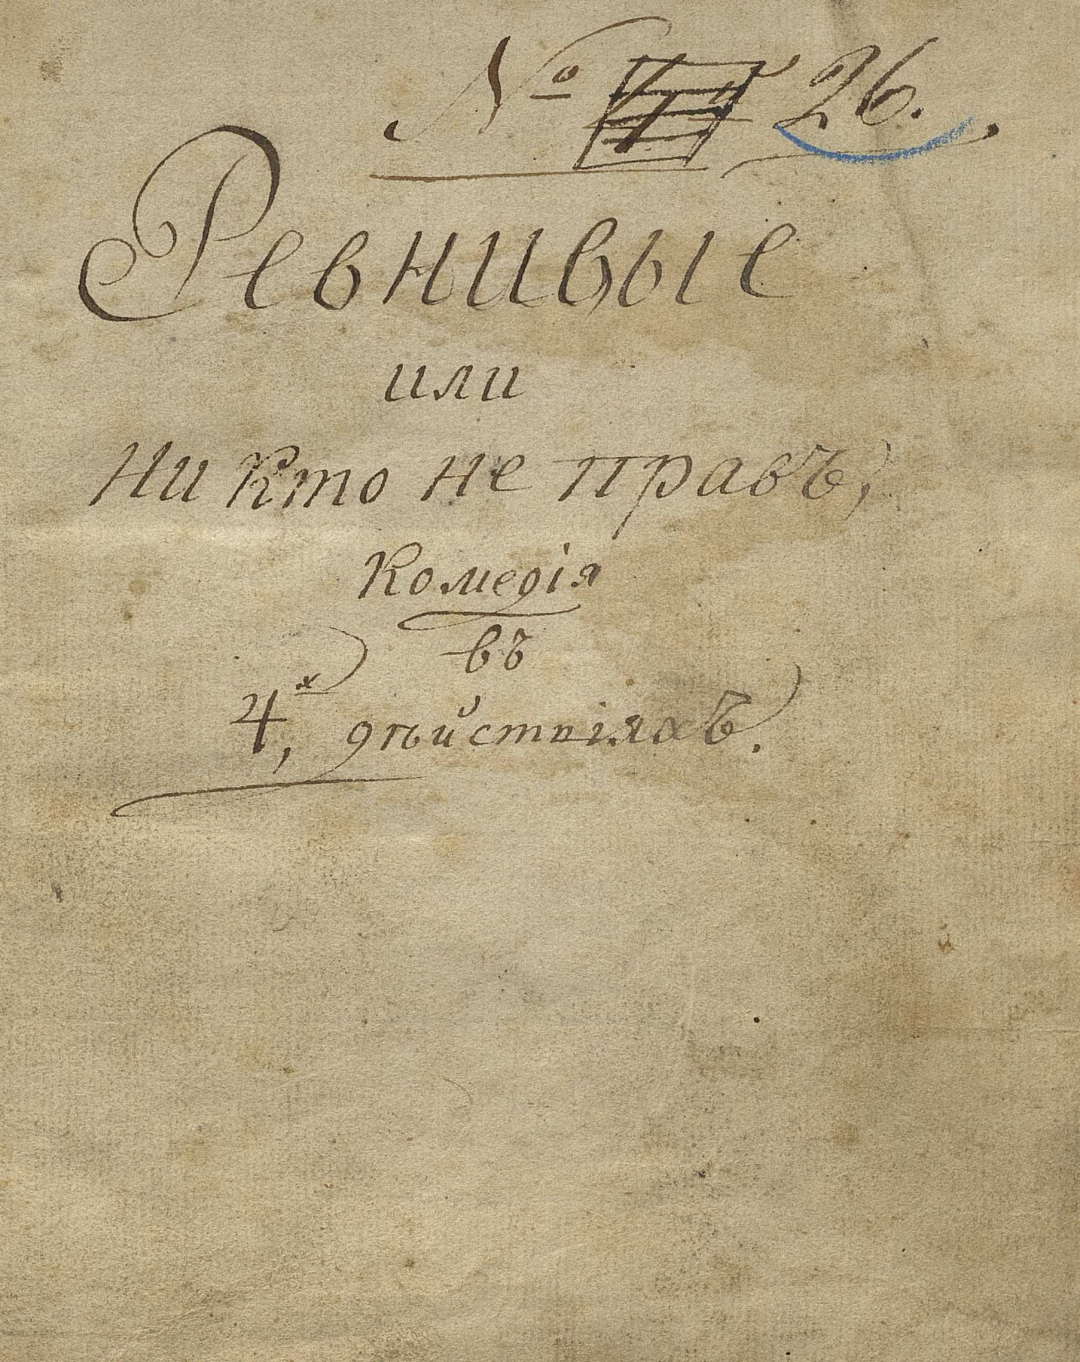 № 26.
Ревнивые
или
Ни кто не правъ,
Комедія
въ
4,х дѣйствіяхъ.